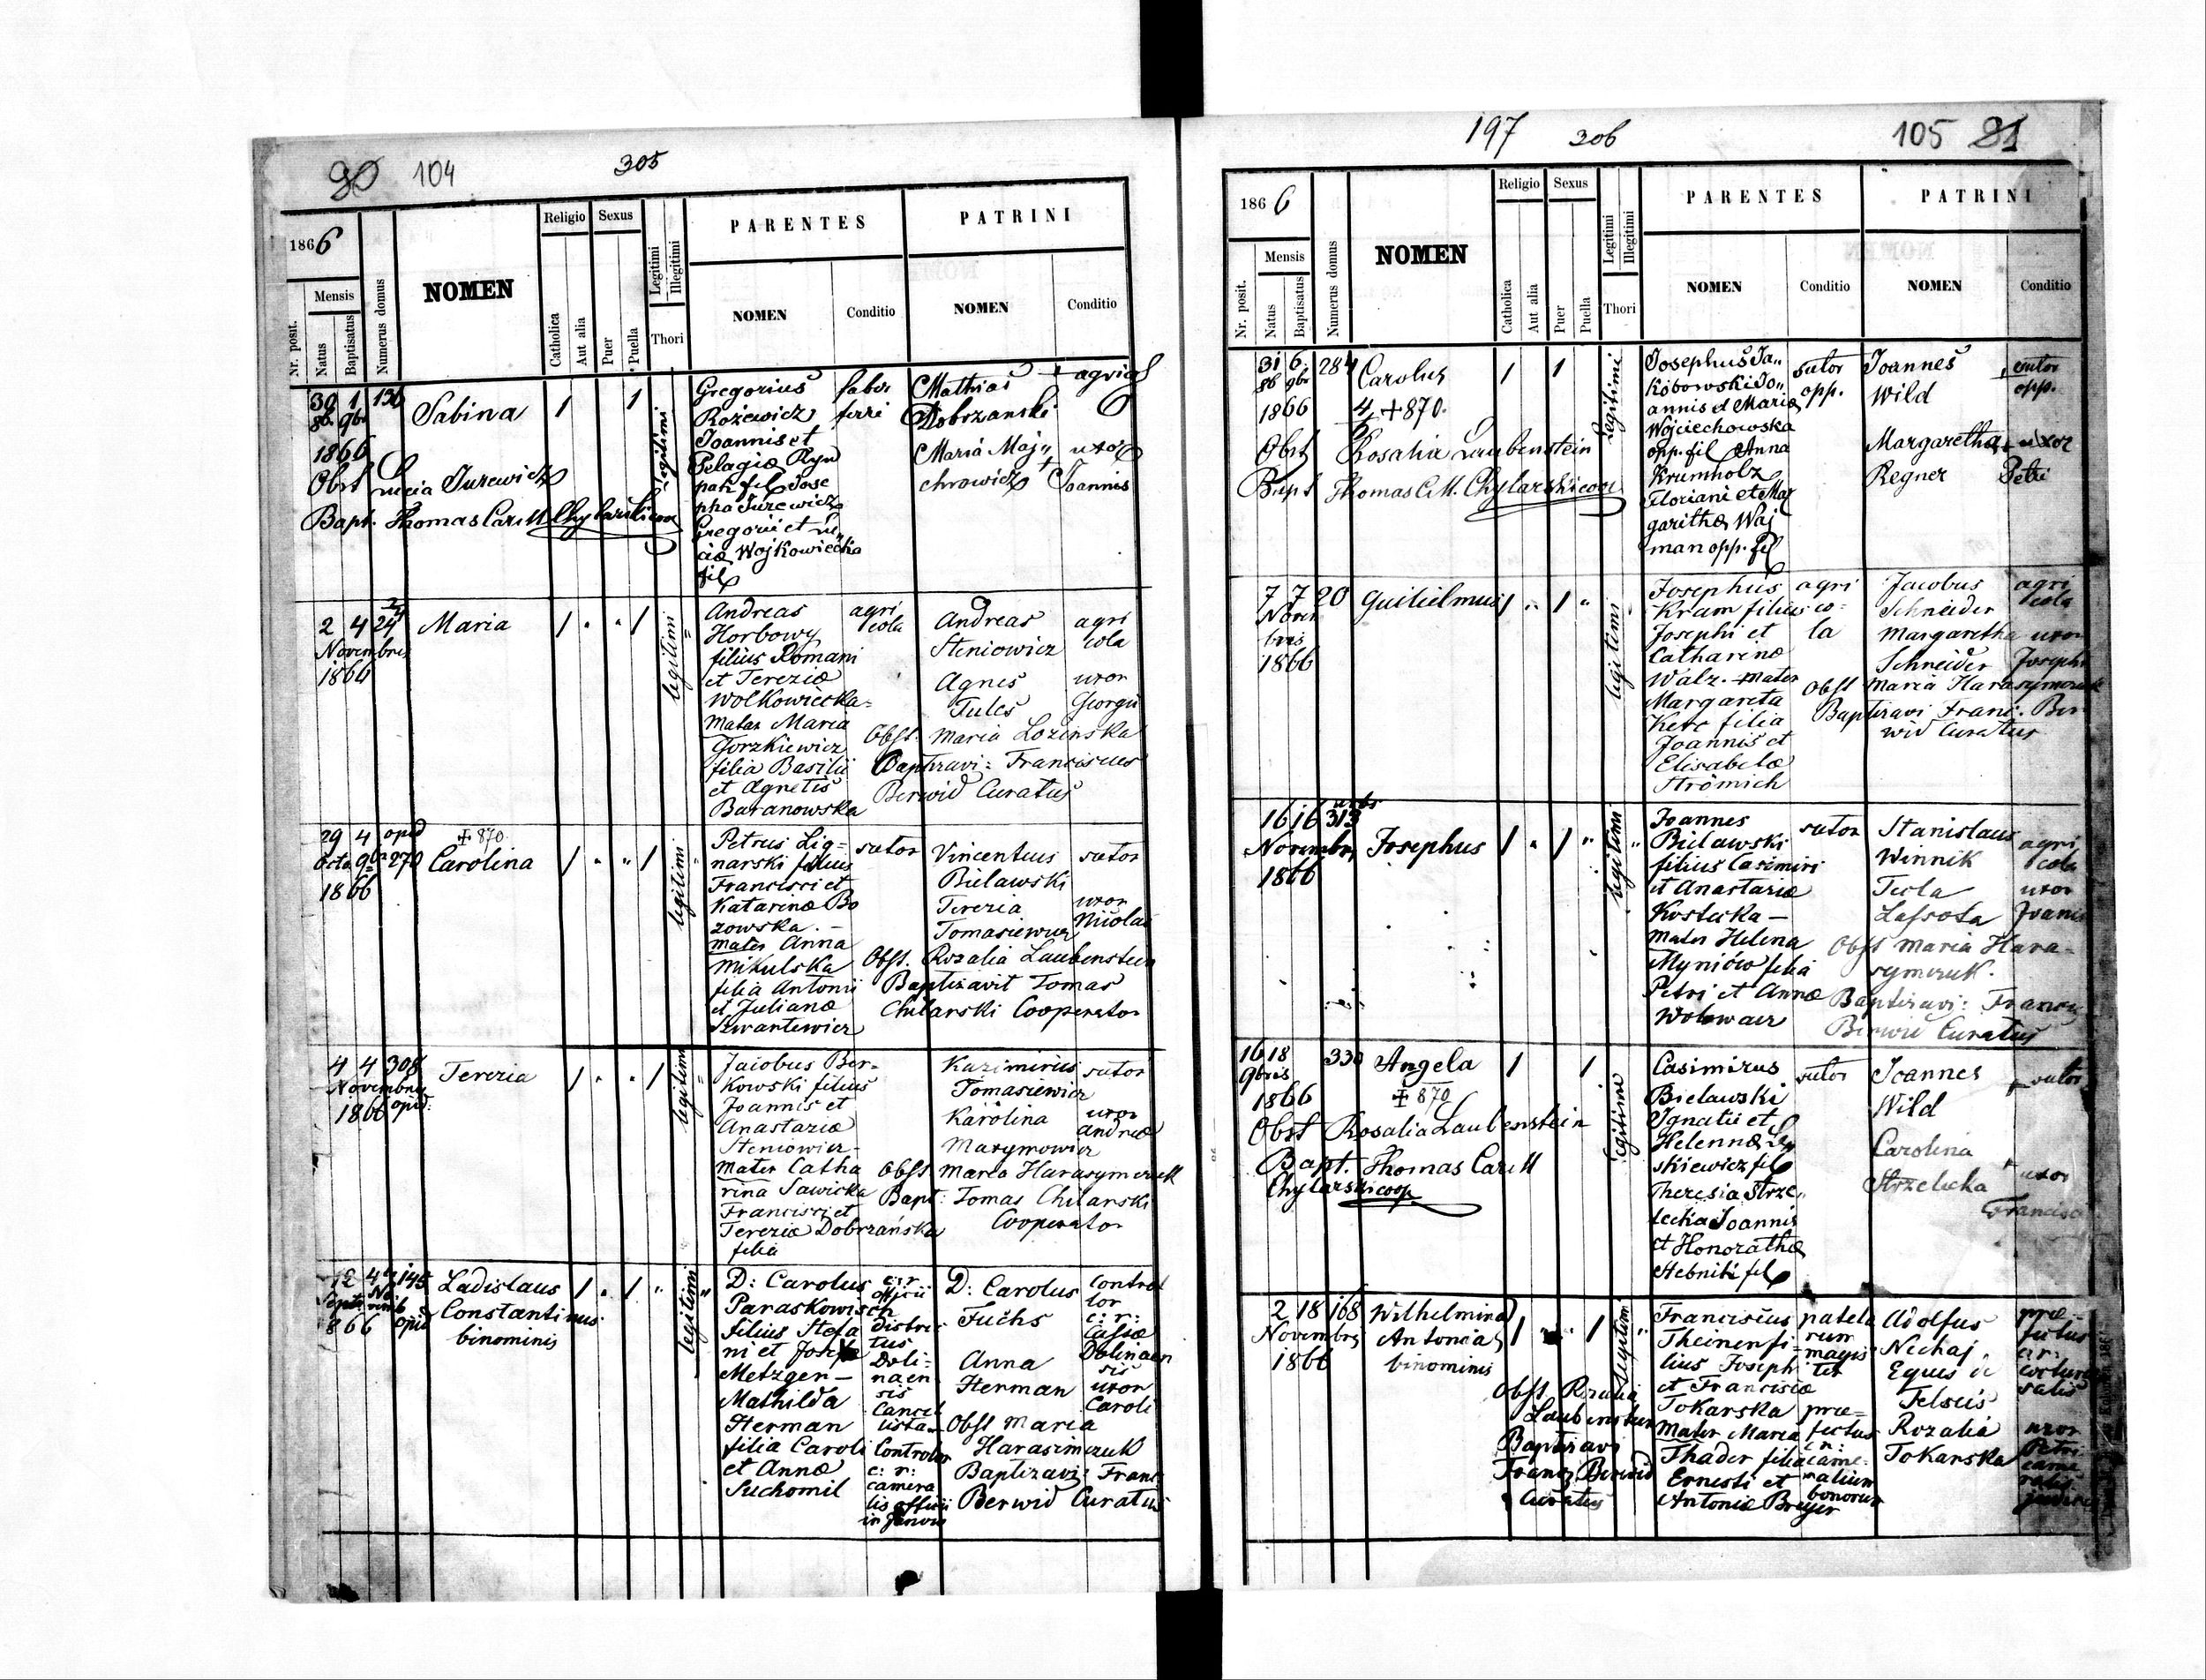 90 104 305
1866
Nr. posit.
Mensis
Natus
Baptisatus
Numerus domus
NOMEN
Religio
Catholica
Aut alia
Sexus
Puer
Puella
Legitimi
Illegitimi
Thori
PARENTES
NOMEN
Conditio
PATRINI
NOMEN
Conditio
30 1 136
8b. 9br
1866
Sabina
1 1
Legitimi
Gregorius
Rożewicz
Joannis et
Pelagiæ Ryn
pah fil Jose
pha Jurewicz
Gregorii et Lu
ciæ Wojkowiecka
fil
faber
ferri
Mathias
Dobrzanski
Maria Maj„
chrowicz
+ agricol
uxor
Joannis
Obst Lucia Jurewicz
Bapt. Thomas Car M Chylarski coop
2 4 24
Novembris
1866
Maria
1 " " 1
legitimi
Andreas
Horbowy
filius Romani
et Tereziæ
Wolkowiecka
Mater Maria
Gorzkiewicz
filia Basilii
et Agnetis
Baranowska
agri
cola
Andreas
Steniowicz
Agnes
Tules
agri
cola
uxor
Georgii
Obst. Maria Lozinska
Baptizavi: Franciscus
Berwid Curatus
29 4 opid
Octo 9br 270
1866
+ 870
Carolina
1 " " 1
legitimi
Petrus Lig=
narski filius
Francisci et
Katarinæ Bo
zowska. —
mater Anna
Mikulska
filia Antonii
et Julianæ
Szwartewicz
sutor
Vincentius
Bielawski
Terezia
Tomasiewicz
sutor
uxor
Nicolai
Obst. Rozalia Laubenstein
Baptizavit Tomas
Chilarski Cooperator
4 4 308
Novembris
1866 opid:
Terezia
1 " " 1
legitimi
Jacobus Ber=
kowski filius
Joannis et
Anastaziæ
Steniowicz-
mater Catha
rina Sawicka
Francisci et
Tereziæ Dobrzańska
filia
Kazimirius
Tomasiewicz
Karolina
Marymowicz
sutor
uxor
Andreæ
Obst Maria Harasymczuk
Bapt: Tomas Chilarski
Cooperator
12 4 145
Septe Novemb
866 opid
Ladislaus
Constantinus
binominis
1 " 1 "
legitimi
D: Carolus
Paraskowisch
filius Stefa
ni et Josefa
Metzger—
Mathilda
Herman
filia Caroli
et Annæ
Suchomil
c: r:
officii
distric
tus
Doli=
naen
sis
Cancel
lista
Controlor
c: r:
camera
lis officii
in Janow
D: Carolus
Fuchs
Anna
Herman
Control
lor
c: r:
Cassæ
Dolinaen
sis
uxor
Caroli
Obst Maria
Harasimczuk
Baptizavi: Franc
Berwid Curatus
197 306 105 81
1866
Nr. posit.
Mensis
Natus
Baptisatus
Numerus domus
NOMEN
Religio
Catholica
Aut alia
Sexus
Puer
Puella
Legitimi
Illegitimi
Thori
PARENTES
NOMEN
Conditio
PATRINI
NOMEN
Conditio
31 6 284
8b 9br
1866
Carolus
+870.
1 1
Legitimi
Josephus Ja„
kobowski Jo„
annis et Mariæ
Wojciechowska
opp. fil Anna
Krumholz
Floriani et Mar
garithæ Waj
man opp. fil
sutor
opp.
Joannes
Wild
Margaretha
Regner
sutor
opp.
uxor
Petri
Obst Rosalia Laubenstein
Bapt Thomas C. M. Chylarski coop
7 7 20
Novem
bris
1866
Guilielmus
1 " 1 "
legitimi
Josephus
Kram filius
Josephi et
Catharinæ
Walz. — Mater
Margareta
Kerc filia
Joannis et
Elisabetæ
Strömich
agri
co=
la
Jacobus
Schneider
Margaretha
Schneider
agri
cola
uxor
Josephi
Obst Maria Harasymczuk
Baptizavi Franc. Ber
wid Curatus
16 16 313
Novembris
1866
Josephus
1 " 1 "
legitimi
Joannes
Bielawski
filius Casimiri
et Anastaziæ
Kostecka —
Mater Helena
Myniów filia
Petri et Annæ
sutor
Stanislaus
Winnik
Tecla
Lassota
agri
cola
uxor
Obst Maria Hara=
symczuk.
Baptizavi: Francis
Berwid Curatus
16 18 330
9bris
1866
Angela
+ 870
1 1
Legitimi
Casimirus
Bielawski
Ignatii et
Helennæ Ly
skiewicz fil
Theresia Strze„
lecka Joannis
et Honorathæ
Stebnik fil
sutor
Joannes
Wild
Carolina
Strzelecka
sutor
uxor
Francisci
Obst Rosalia Laubenstein
Bapt. Thomas Car M
Chylarski coop
2 18 168
Novembris
1866
Wilhelmina
Antonia
binominis
1 " " 1
legitimi
Franciscus
Theinen fi=
lius Joseph
et Franciscæ
Tokarska
Mater Maria
Thader filia
Ernesti et
Antoniæ Breyer
patela
rum
magis
ter
præ=
fectus
c r:
came=
ralium
bonorum
Adolfus
Nechaj
Eques de
Felseis
Rozalia
Tokarska
præ=
fectus
c: r:
cocturæ
salis
uxor
Petri
came
ralis
Obst Rozalia
Laubenstein
Baptizavi
Franc Berwid
Curatus